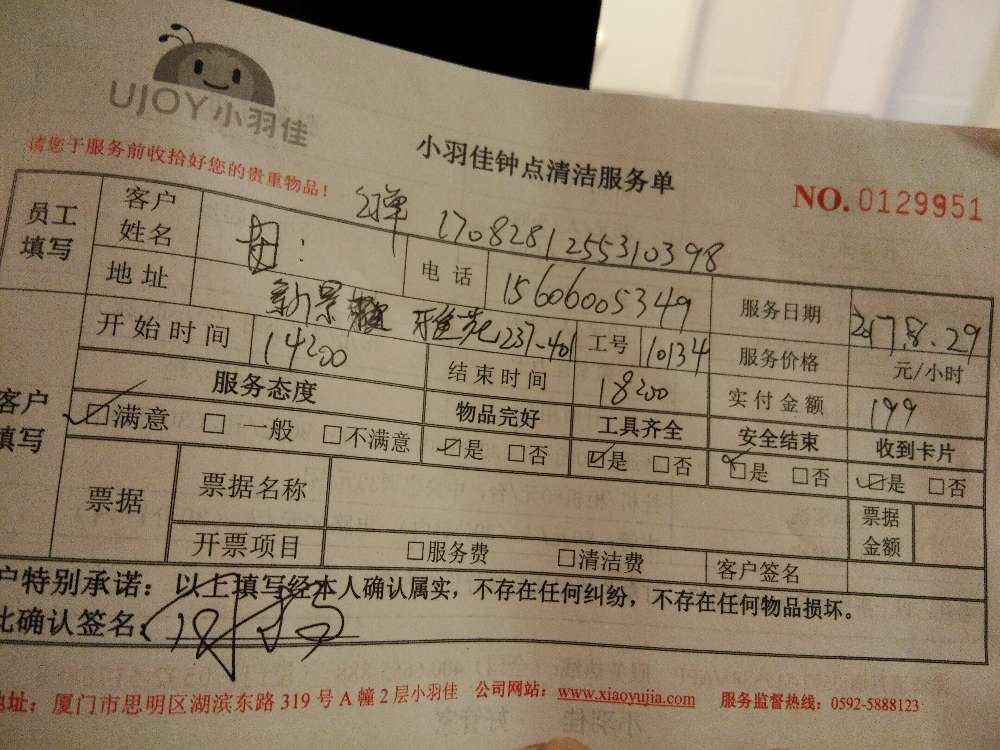 UJOY小羽佳
小羽佳钟点清洁服务单
请您于服务前收拾好您的贵重物品！
NO. 0129951
员工填写
客户姓名
1708281255310398
电话 15606005349
服务日期 2017.8.29
地址 新景 237-401
工号 10134
服务价格 元/小时
开始时间 14:00
结束时间 18:00
实付金额 199
客户填写
服务态度 物品完好 工具齐全 安全结束 收到卡片
☑满意 □一般 □不满意 ☑是 □否 ☑是 □否 ☑是 □否 ☑是 □否
票据
票据名称
票据金额
开票项目 □服务费 □清洁费 客户签名
户特别承诺：以上填写经本人确认属实，不存在任何纠纷，不存在任何物品损坏。
此确认签名:
地址：厦门市思明区湖滨东路 319 号 A 幢 2 层小羽佳 公司网站：www.xiaoyujia.com 服务监督热线：0592-5888123